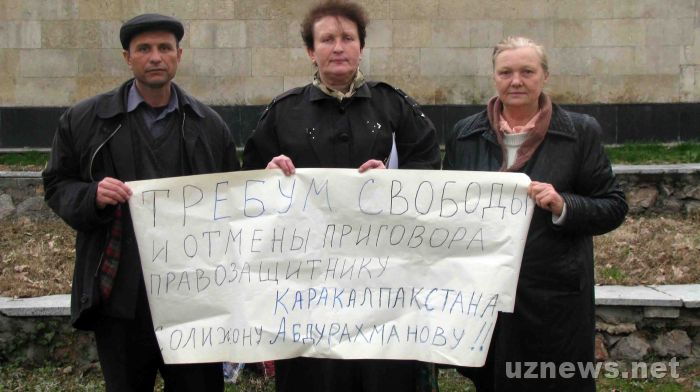 ТРЕБУМ СВОБОДЫ
И ОТМЕНЫ ПРИГОВОРА
ПРАВОЗАЩИТНИКУ
КАРАКАЛПАКСТАНА
СОЛИЖОНУ АБДУРАХМАНОВУ!!
uznews.net